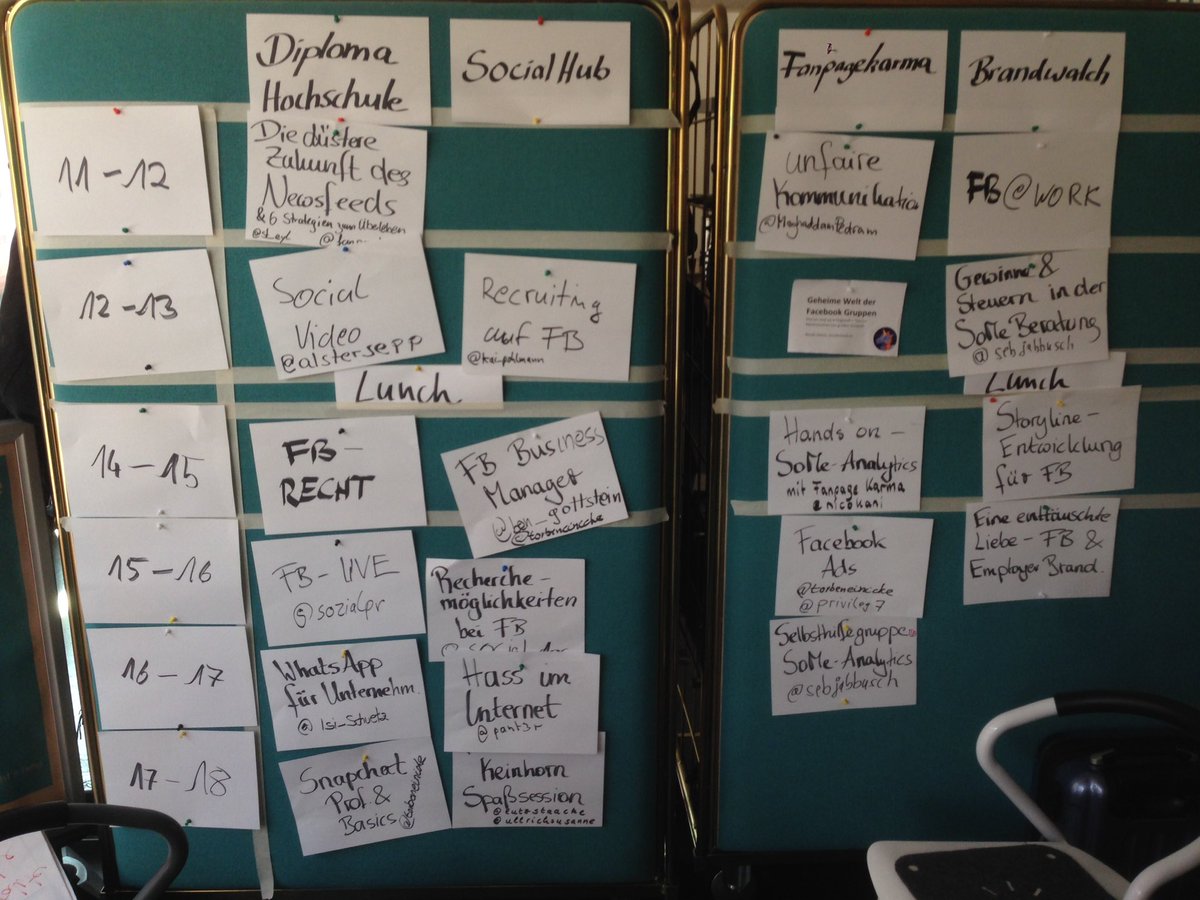 Diploma
Hochschule
Social Hub
Fanpagekarma
Brandwatch
11-12
Die düstere
Zukunft des
Newsfeeds
& 6 Strategien zum Überleben
unfaire
Kommunikation
@MoghaddamPedram
FB@WORK
12-13
Social
Video
@alstersepp
Recruiting
auf FB
@kaipohlmann
Geheime Welt der
Facebook Gruppen
Gewinne &
Steuern in der
SoMe Beratung
@sebjabbusch
Lunch
Lunch
14-15
FB-
RECHT
FB Business
Manager
@ben_gottstein
@torbeneincke
Hands on -
SoMe-Analytics
mit Fanpage Karma
@nicokani
Storyline-
Entwicklung
für FB
15-16
FB-LIVE
@sozialpr
Recherche-
möglichkeiten
bei FB
Facebook
Ads
@torbeneincke
@privileg7
Eine enttäuschte
Liebe - FB &
Employer Brand.
16-17
WhatsApp
für Unternehm.
@Isi_Schuetz
Hass im
Internet
@pant3r
Selbsthilfegruppe
SoMe-Analytics
@sebjabbusch
17-18
Snapchat
Prof. &
Basics
@torbeneincke
Keinhorn
Spaßsession
@lutzstaacke
@ullrichsusanne